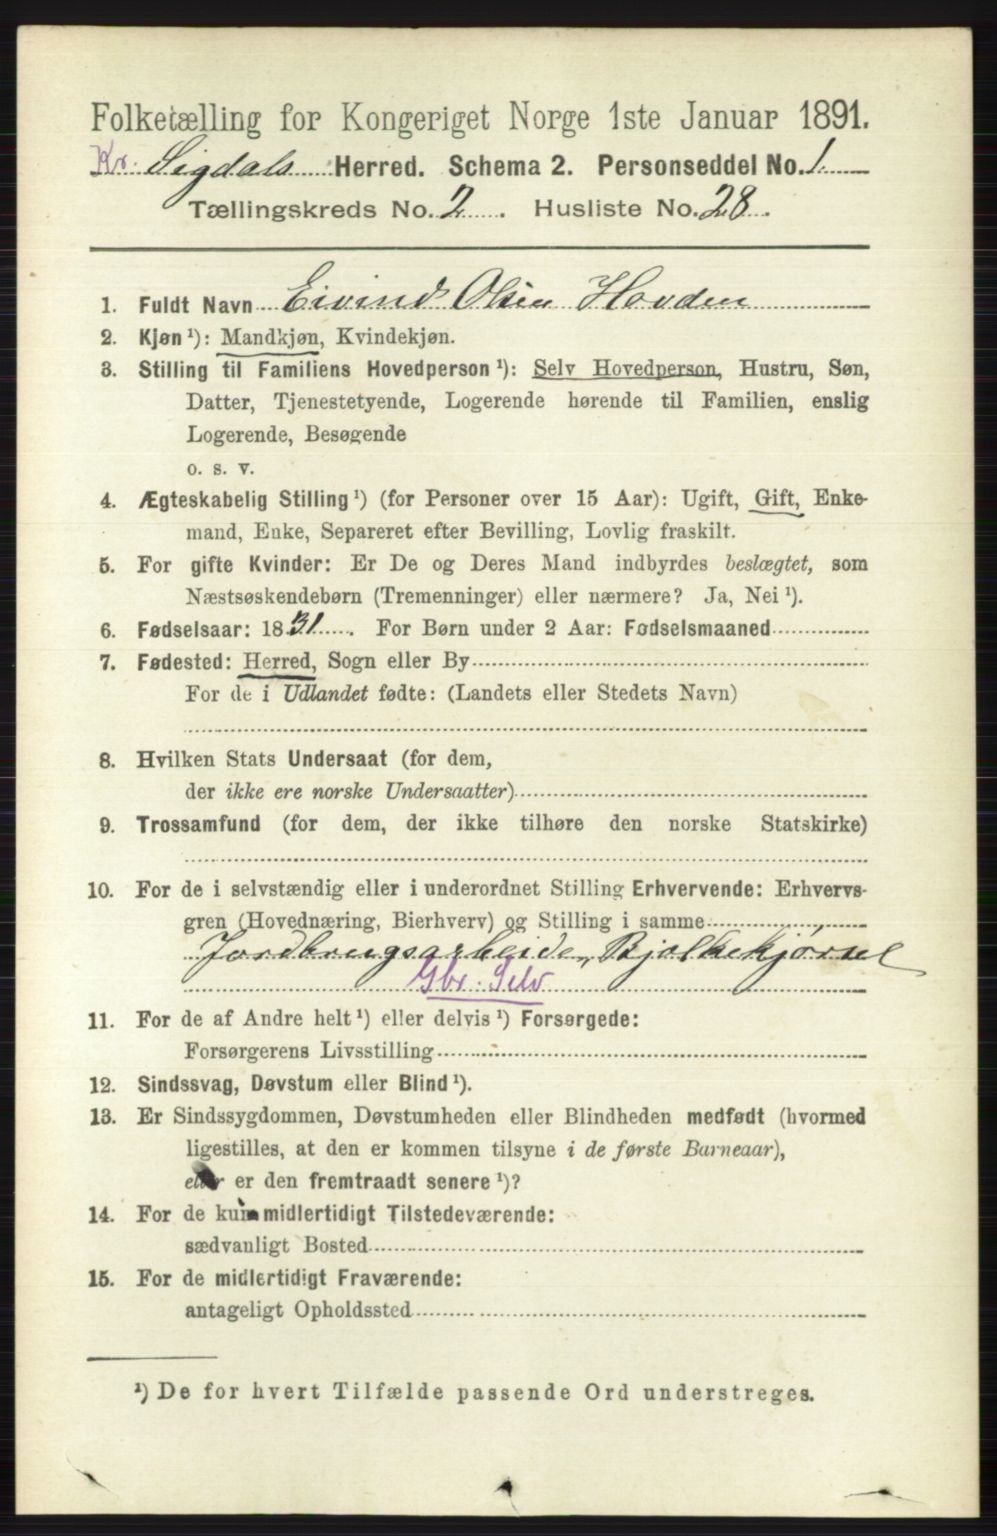 Folketælling for Kongeriget Norge 1ste Januar 1891.
Kr. Sigdals Herred. Schema 2. Personseddel No. 1
Tællingskreds No. 2. Husliste No. 28.
1. Fuldt Navn Eivind Olsen Hovden
2. Kjøn ¹): Mandkjøn, Kvindekjøn.
3. Stilling til Familiens Hovedperson ¹): Selv Hovedperson, Hustru, Søn,
Datter, Tjenestetyende, Logerende hørende til Familien, enslig
Logerende, Besøgende
o. s. v.
4. Ægteskabelig Stilling ¹) (for Personer over 15 Aar): Ugift, Gift, Enke-
mand, Enke, Separeret efter Bevilling, Lovlig fraskilt.
5. For gifte Kvinder: Er De og Deres Mand indbyrdes beslægtet, som
Næstsøskendebørn (Tremenninger) eller nærmere? Ja, Nei ¹).
6. Fødselsaar: 1831. For Børn under 2 Aar: Fødselsmaaned
7. Fødested: Herred, Sogn eller By
For de i Udlandet fødte: (Landets eller Stedets Navn)
8. Hvilken Stats Undersaat (for dem,
der ikke ere norske Undersaatter)
9. Trossamfund (for dem, der ikke tilhøre den norske Statskirke)
10. For de i selvstændig eller i underordnet Stilling Erhvervende: Erhvervs-
gren (Hovednæring, Bierhverv) og Stilling i samme
Jordbrugsarbeide, Bjelkekjørsel
Gbr. Selv
11. For de af Andre helt ¹) eller delvis ¹) Forsørgede:
Forsørgerens Livsstilling
12. Sindssvag, Døvstum eller Blind ¹).
13. Er Sindssygdommen, Døvstumheden eller Blindheden medfødt (hvormed
ligestilles, at den er kommen tilsyne i de første Barneaar),
eller er den fremtraadt senere ¹)?
14. For de kun midlertidigt Tilstedeværende:
sædvanligt Bosted
15. For de midlertidigt Fraværende:
antageligt Opholdssted
¹) De for hvert Tilfælde passende Ord understreges.